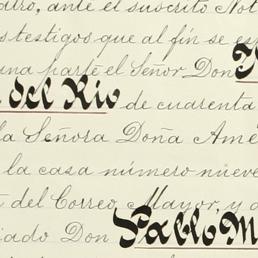 dro, ante el suscrito Not
testigos que al fin se es
una parte el Señor Don
del Rio de cuarenta
la Señora Doña Amé
la casa número nueve
del Correo Mayor, y
Don Pablo M